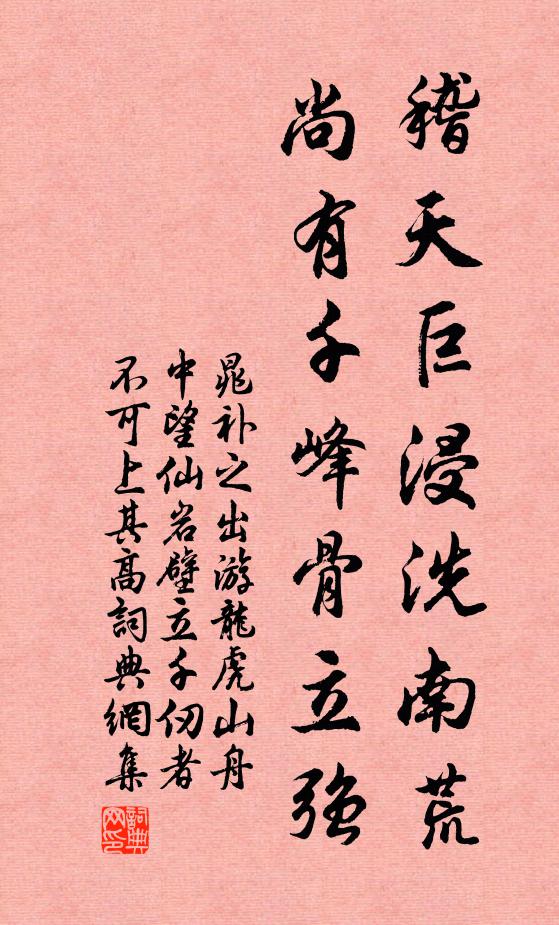 稽天巨浸洗南荒
尚有千峰骨立強
晁补之出游龍虎山舟
中望仙岩壁立千仞者
不可上其高詞典網集
詞典网印